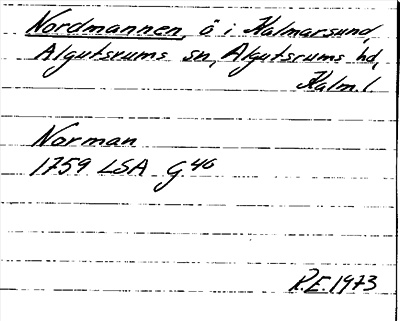 Nordmannen, ö i Kalmarsund,
Algutsrums sn, Algutsrums hd,
Kalm. l
Norman
1759 LSA G 46
R.E. 1973